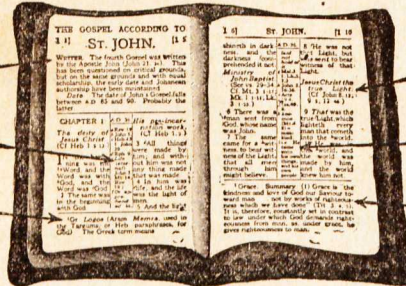 THE GOSPEL ACCORDING TO
1 1] ST. JOHN. [1 5
WRITER. The fourth Gospel was written
by the Apostle John (John 21
has been questioned on critical grounds,
but on the same grounds and with equal
scholarship, the early date and Johannean
authorship have been maintained.
Date. The date of John's Gospel falls
between A.D. 85 and 90. Probably the
latter
CHAPTER 1
The deity of
Jesus Christ
(Cf Heb 1
was the
Word, and the
Word was with
God, and the
Word was God
2 The same was
in the beginning
with God
A.D.
His pre-incar-
nation work.
(Cf Heb 1
3 All things
were made by
him; and with-
out him was not
any thing made
that was made
4 In him was
life, and the life
was the light of
men.
5 And the light
Gr Logos (Aram Memra, used in
the Targums, or Heb paraphrases, for
God) The Greek term means
1 6] ST. JOHN. [1 10
shineth in dark-
ness; and the
darkness com-
prehended it not
Ministry of
John Baptist
6 There was a
man sent from
God, whose name
was John.
7 The same
came for a wit-
ness, to bear wit-
ness of the Light,
that all men
through him
might believe.
A.D.
8 He was not
that Light, but
was sent to bear
witness of that
Light.
Jesus Christ the
true Light
(Cf John 8
9 That was the
true Light, which
lighteth every
man that cometh
into the world.
10 He was in the
world, and
the world was
made by him,
and the world
knew him not.
Grace. Summary (1) Grace is the
kindness and love of God our Saviour to-
ward man not by works of righteous-
ness which we have done
It is, therefore, constantly set in contrast
to law under which God demands right-
eousness from man, as, under grace, he
gives righteousness to man